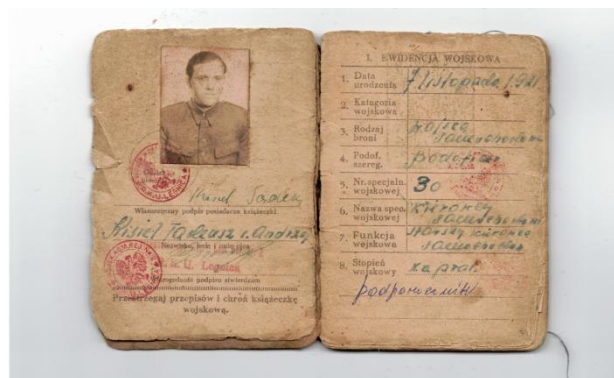 Kisiel Tadeusz
Własnoręczny podpis posiadacza książeczki
Kisiel Tadeusz s. Andrzeja
Nazwisko, imię i imię ojca
Legnica
podpisu stwierdzam
Przestrzegaj przepisów i chroń książeczkę
wojskową.
I. EWIDENCJA WOJSKOWA
1. Data urodzenia 7 listopada 1921
2. Kategoria wojskowa
3. Rodzaj broni wojska samochodowe
4. Podof. szereg. podoficer
5. Nr. specjaln. wojskowej 30
6. Nazwa spec. wojskowej kierowcy samochodowi
7. Funkcja wojskowa starszy kierowca samochodowy
8. Stopień wojskowy kapral
podporucznik